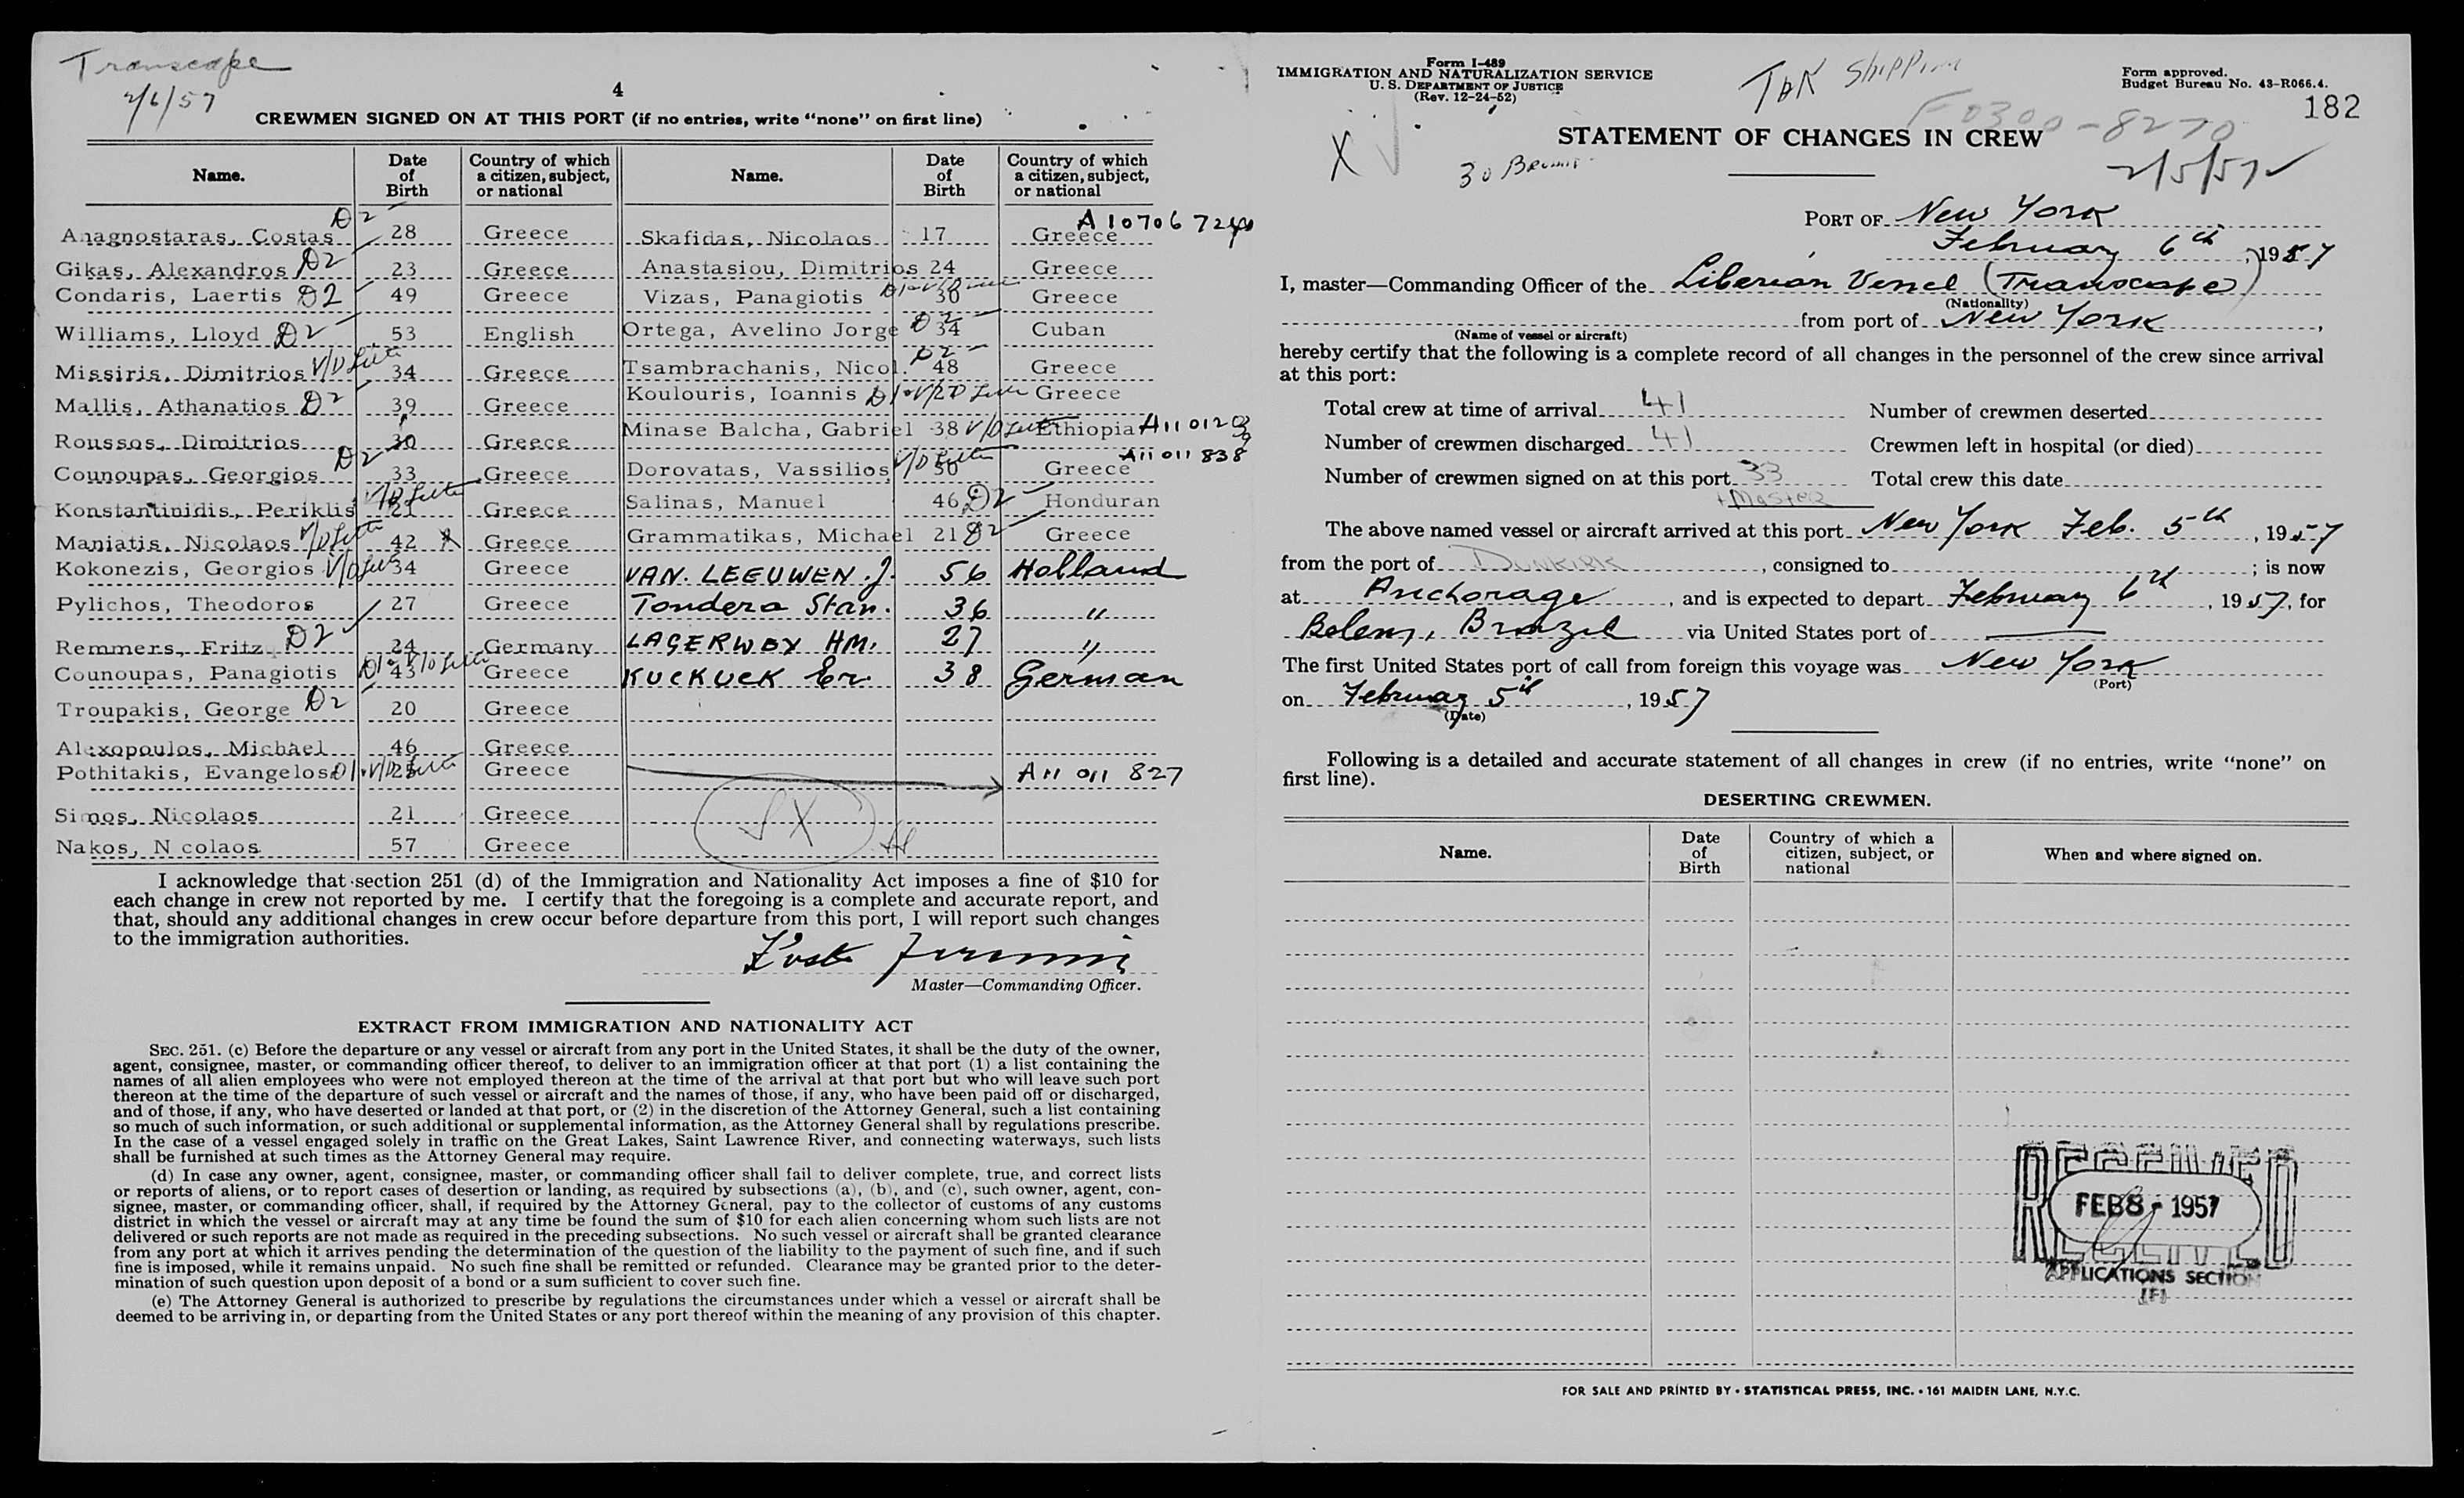 Transcape
2/6/57
4
CREWMEN SIGNED ON AT THIS PORT (if no entries, write "none" on first line)
Name. Date of Birth Country of which a citizen, subject, or national Name. Date of Birth Country of which a citizen, subject, or national
Anagnostaras, Costas D2 28 Greece
Gikas, Alexandros D2 23 Greece
Condaris, Laertis D2 49 Greece
Williams, Lloyd D2 53 English
Missiris, Dimitrios V/D 34 Greece
Mallis, Athanatios D2 39 Greece
Roussos, Dimitrios 30 Greece
Counoupas, Georgios D2 33 Greece
Konstantinidis, Periklis V/D 21 Greece
Maniatis, Nicolaos V/D 42 Greece
Kokonezis, Georgios V/D 34 Greece
Pylichos, Theodoros 27 Greece
Remmers, Fritz D2 24 Germany
Counoupas, Panagiotis D1 V/D 43 Greece
Troupakis, George D2 20 Greece
Alexopoulos, Michael 46 Greece
Pothitakis, Evangelos D1 V/D 25 Greece
Simos, Nicolaos 21 Greece
Nakos, N colaos 57 Greece
Skafidas, Nicolaos 17 Greece A10706724
Anastasiou, Dimitrios 24 Greece
Vizas, Panagiotis 30 Greece
Ortega, Avelino Jorge D2 34 Cuban
Tsambrachanis, Nicol. D2 48 Greece
Koulouris, Ioannis D1 V/D 27 Greece
Minase Balcha, Gabriel 38 V/D Ethiopia
Dorovatas, Vassilios V/D 50 Greece A11 011 838
Salinas, Manuel 46 D2 Honduran
Grammatikas, Michael 21 D2 Greece
VAN. LEEUWEN. J. 56 Holland
Tondera Stan. 36 "
LAGERWEY HM. 27 "
KUCKUCK Er. 38 German
A11 011 827
X
I acknowledge that section 251 (d) of the Immigration and Nationality Act imposes a fine of $10 for
each change in crew not reported by me. I certify that the foregoing is a complete and accurate report, and
that, should any additional changes in crew occur before departure from this port, I will report such changes
to the immigration authorities.
Master—Commanding Officer.
EXTRACT FROM IMMIGRATION AND NATIONALITY ACT
SEC. 251. (c) Before the departure or any vessel or aircraft from any port in the United States, it shall be the duty of the owner,
agent, consignee, master, or commanding officer thereof, to deliver to an immigration officer at that port (1) a list containing the
names of all alien employees who were not employed thereon at the time of the arrival at that port but who will leave such port
thereon at the time of the departure of such vessel or aircraft and the names of those, if any, who have been paid off or discharged,
and of those, if any, who have deserted or landed at that port, or (2) in the discretion of the Attorney General, such a list containing
so much of such information, or such additional or supplemental information, as the Attorney General shall by regulations prescribe.
In the case of a vessel engaged solely in traffic on the Great Lakes, Saint Lawrence River, and connecting waterways, such lists
shall be furnished at such times as the Attorney General may require.
(d) In case any owner, agent, consignee, master, or commanding officer shall fail to deliver complete, true, and correct lists
or reports of aliens, or to report cases of desertion or landing, as required by subsections (a), (b), and (c), such owner, agent, con-
signee, master, or commanding officer, shall, if required by the Attorney General, pay to the collector of customs of any customs
district in which the vessel or aircraft may at any time be found the sum of $10 for each alien concerning whom such lists are not
delivered or such reports are not made as required in the preceding subsections. No such vessel or aircraft shall be granted clearance
from any port at which it arrives pending the determination of the question of the liability to the payment of such fine, and if such
fine is imposed, while it remains unpaid. No such fine shall be remitted or refunded. Clearance may be granted prior to the deter-
mination of such question upon deposit of a bond or a sum sufficient to cover such fine.
(e) The Attorney General is authorized to prescribe by regulations the circumstances under which a vessel or aircraft shall be
deemed to be arriving in, or departing from the United States or any port thereof within the meaning of any provision of this chapter.
Form I-489
IMMIGRATION AND NATURALIZATION SERVICE
U. S. DEPARTMENT OF JUSTICE
(Rev. 12-24-52)
Shipping
Form approved.
Budget Bureau No. 43-R066.4.
182
0300-8270
X
STATEMENT OF CHANGES IN CREW
2/5/57
PORT OF New York
February 6th, 1957
I, master—Commanding Officer of the Liberian Vessel (Transcape)
(Nationality)
from port of New York,
(Name of vessel or aircraft)
hereby certify that the following is a complete record of all changes in the personnel of the crew since arrival
at this port:
Total crew at time of arrival 41 Number of crewmen deserted
Number of crewmen discharged 41 Crewmen left in hospital (or died)
Number of crewmen signed on at this port 33 Total crew this date
+ Master
The above named vessel or aircraft arrived at this port New York Feb. 5th, 1957
from the port of Dunkirk, consigned to ; is now
at Anchorage, and is expected to depart February 6th, 1957, for
Belem, Brazil via United States port of
The first United States port of call from foreign this voyage was New York
(Port)
on February 5th, 1957
(Date)
Following is a detailed and accurate statement of all changes in crew (if no entries, write "none" on
first line).
DESERTING CREWMEN.
Name. Date of Birth Country of which a citizen, subject, or national When and where signed on.
RECEIVED
FEB 8 - 1957
APPLICATIONS SECTION
(F)
FOR SALE AND PRINTED BY • STATISTICAL PRESS, INC. • 161 MAIDEN LANE, N.Y.C.